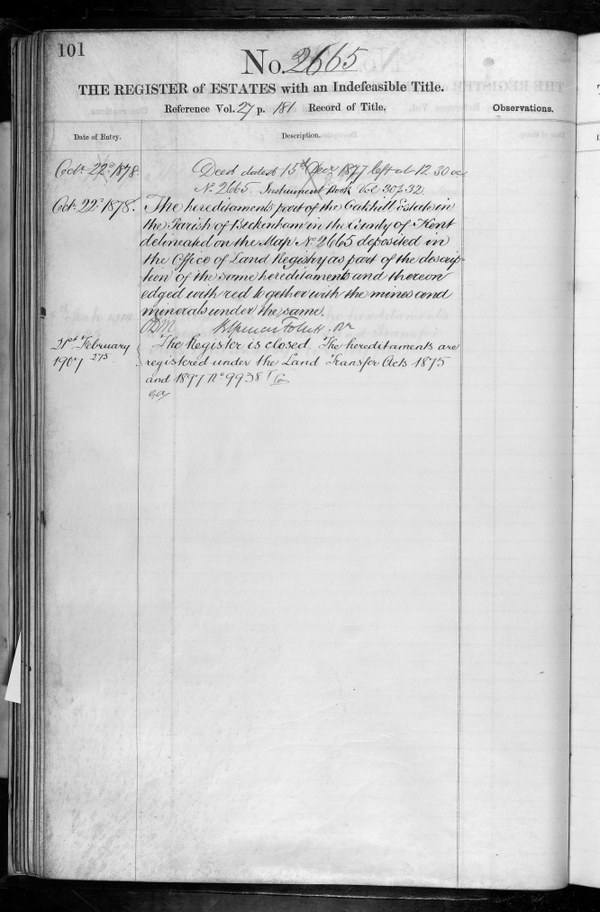 101
No. 2665
THE REGISTER of ESTATES with an Indefeasible Title.
Reference Vol. 27 p. 181 Record of Title.
Observations.
Date of Entry.
Description.
Octr. 22d 1878.
Deed dated 15th Decr 1877 left at 12.30 oc
No. 2665 Instrument Book Vol 30 f 32
Oct. 22d 1878.
The hereditaments part of the Oakhill Estate in
the Parish of Beckenham in the County of Kent
delineated on the Map No 2665 deposited in
the Office of Land Registry as part of the descrip-
tion of the same hereditaments and thereon
edged with red together with the mines and
minerals under the same.
21st February
1907
The Register is closed. The hereditaments are
registered under the Land Transfer Acts 1875
and 1897 No 9938